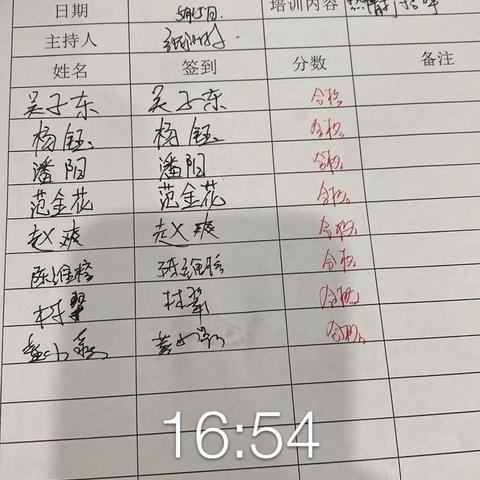 日期 5月15日 培训内容
主持人
姓名 签到 分数 备注
吴子东 吴子东 合格
杨钰 杨钰 合格
潘阳 潘阳 合格
范金花 范金花 合格
赵爽 赵爽 合格
陈维榕 合格
村翠 村翠 合格
合格
16:54